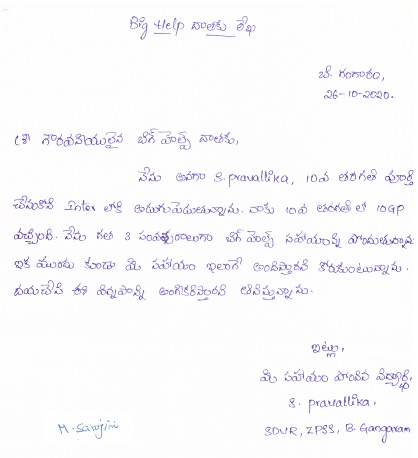 Big Help దాతకు లేఖ
బి. గంగారం,
26-10-2020.
శ్రీ గౌరవనీయులైన బిగ్ హెల్ప్ దాతకు,
నేను అనగా S. pravallika, 10వ తరగతి పూర్తి
చేసుకొని Inter లోకి అడుగుపెడుతున్నాను. నాకు 10వ తరగతి లో 10GP
వచ్చింది. నేను గత 3 సంవత్సరాలుగా బిగ్ హెల్ప్ సహాయాన్ని పొందుతున్నాను
ఇక ముందు కుడా మీ సహాయం ఇలాగే అందిస్తారని కోరుకుంటున్నాను.
దయచేసి ఈ విన్నపాన్ని అంగీకరిస్తారని భావిస్తున్నాను.
ఇట్లు,
మీ సహాయం పొందిన విద్యార్థి,
S. pravallika,
SDVR, ZPSS, B. Gangaram
M. Sarojini